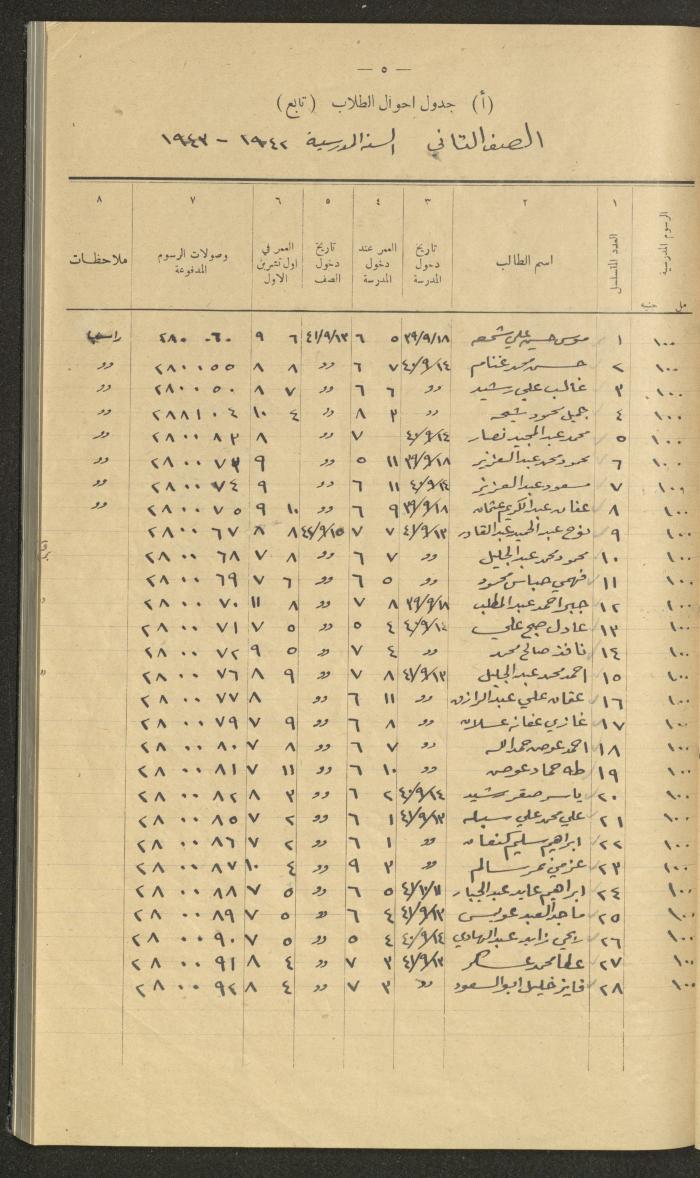 — ٥ —
(أ) جدول احوال الطلاب (تابع)
الصف الثاني السنة المدرسية ١٩٤٢ - ١٩٤٣
الرسوم المدرسية ١ ٢ ٣ ٤ ٥ ٦ ٧ ٨
مل جنيه العدد المتسلسل اسم الطالب تاريخ دخول المدرسة العمر عند دخول المدرسة تاريخ دخول الصف العمر في اول تشرين الاول وصولات الرسوم المدفوعة ملاحظات
١٠٠ ١ موسى حسين علي شمعه ٣٩/٩/١٨ ٥ ٦ ٤١/٩/١٣ ٦ ٩ ٢٨٠٠٠٦٠
١٠٠ ٢ حسن محمد غنام ٤٠/٩/١٤ ٧ ٦ رر ٨ ٨ ٢٨٠٠٠٥٥ رر
١٠٠ ٣ غالب علي رشيد رر ٦ ٦ رر ٧ ٨ ٢٨٠٠٠٥٠ رر
١٠٠ ٤ جميل محمود شيحه رر ٣ ٨ رر ٤ ١٠ ٢٨٨١٠٤ رر
١٠٠ ٥ محمد عبد المجيد نصار ٤٠/٩/١٤ ٧ رر ٨ ٢٨٠٠٠٨٣ رر
١٠٠ ٦ محمود محمد عبد العزيز ٣٩/٩/١٨ ١١ ٥ رر ٩ ٢٨٠٠٠٧٣ رر
١٠٠ ٧ مسعود عبد العزيز ٤٠/٩/١٤ ١١ ٦ رر ٩ ٢٨٠٠٠٧٤ رر
١٠٠ ٨ عفان عبد الكريم عثمان ٣٩/٩/١٨ ٩ ٦ رر ١٠ ٩ ٢٨٠٠٠٧٥ رر
١٠٠ ٩ نوح عبد الحميد عبد القادر ٤١/٩/١٣ ٧ ٧ ٤٢/٩/١٥ ٨ ٨ ٢٨٠٠٠٦٧
١٠٠ ١٠ محمود محمد عبد الجليل رر ٧ ٦ رر ٨ ٧ ٢٨٠٠٦٨
١٠٠ ١١ فهمي عباس محمود رر ٥ ٦ رر ٦ ٧ ٢٨٠٠٦٩
١٠٠ ١٢ جبر احمد عبد المطلب ٣٩/٩/١٨ ٨ ٧ رر ٨ ١١ ٢٨٠٠٧٠
١٠٠ ١٣ عادل صبح علي ٤٠/٩/١٤ ٤ ٥ رر ٥ ٧ ٢٨٠٠٧١
١٠٠ ١٤ نافذ صالح محمد رر ٤ ٧ رر ٥ ٩ ٢٨٠٠٧٢
١٠٠ ١٥ احمد محمد عبد الجليل ٤١/٩/١٣ ٨ ٧ رر ٩ ٨ ٢٨٠٠٧٦
١٠٠ ١٦ عثمان علي عبد الرازق رر ١١ ٦ رر ٨ ٢٨٠٠٧٧
١٠٠ ١٧ غازي عفانه عسلان رر ٨ ٦ رر ٩ ٧ ٢٨٠٠٧٩
١٠٠ ١٨ احمد عوض حمدالله رر ٧ ٦ رر ٨ ٧ ٢٨٠٠٨٠
١٠٠ ١٩ طه حماد عوض رر ١٠ ٦ رر ١١ ٧ ٢٨٠٠٨١
١٠٠ ٢٠ ياسر صقر رشيد ٤٠/٩/١٤ ٢ ٦ رر ٣ ٨ ٢٨٠٠٨٢
١٠٠ ٢١ علي محمد علي ٤١/٩/١٣ ١ ٦ رر ٢ ٧ ٢٨٠٠٨٥
١٠٠ ٢٢ ابراهيم سليم كنعان رر ١ ٦ رر ٢ ٧ ٢٨٠٠٨٦
١٠٠ ٢٣ عزمي نمر سالم رر ٣ ٩ رر ٤ ١٠ ٢٨٠٠٨٧
١٠٠ ٢٤ ابراهيم عايد عبد الجبار ٥ ٦ رر ٥ ٧ ٢٨٠٠٨٨
١٠٠ ٢٥ ماجد العبد عويس ٤١/٩/١٣ ٤ ٦ رر ٥ ٧ ٢٨٠٠٨٩
١٠٠ ٢٦ ربحي زايد عبد الهادي ٤٠/٩/١٤ ٤ ٥ رر ٥ ٧ ٢٨٠٠٩٠
١٠٠ ٢٧ عطا محمد عسكر ٤١/٩/١٣ ٣ ٧ رر ٤ ٨ ٢٨٠٠٩١
١٠٠ ٢٨ فايز خليل ابو السعود رر ٣ ٧ رر ٤ ٨ ٢٨٠٠٩٢